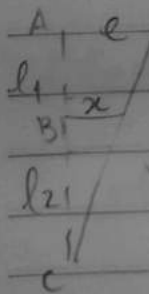 A e
l1
x
B
l2
C